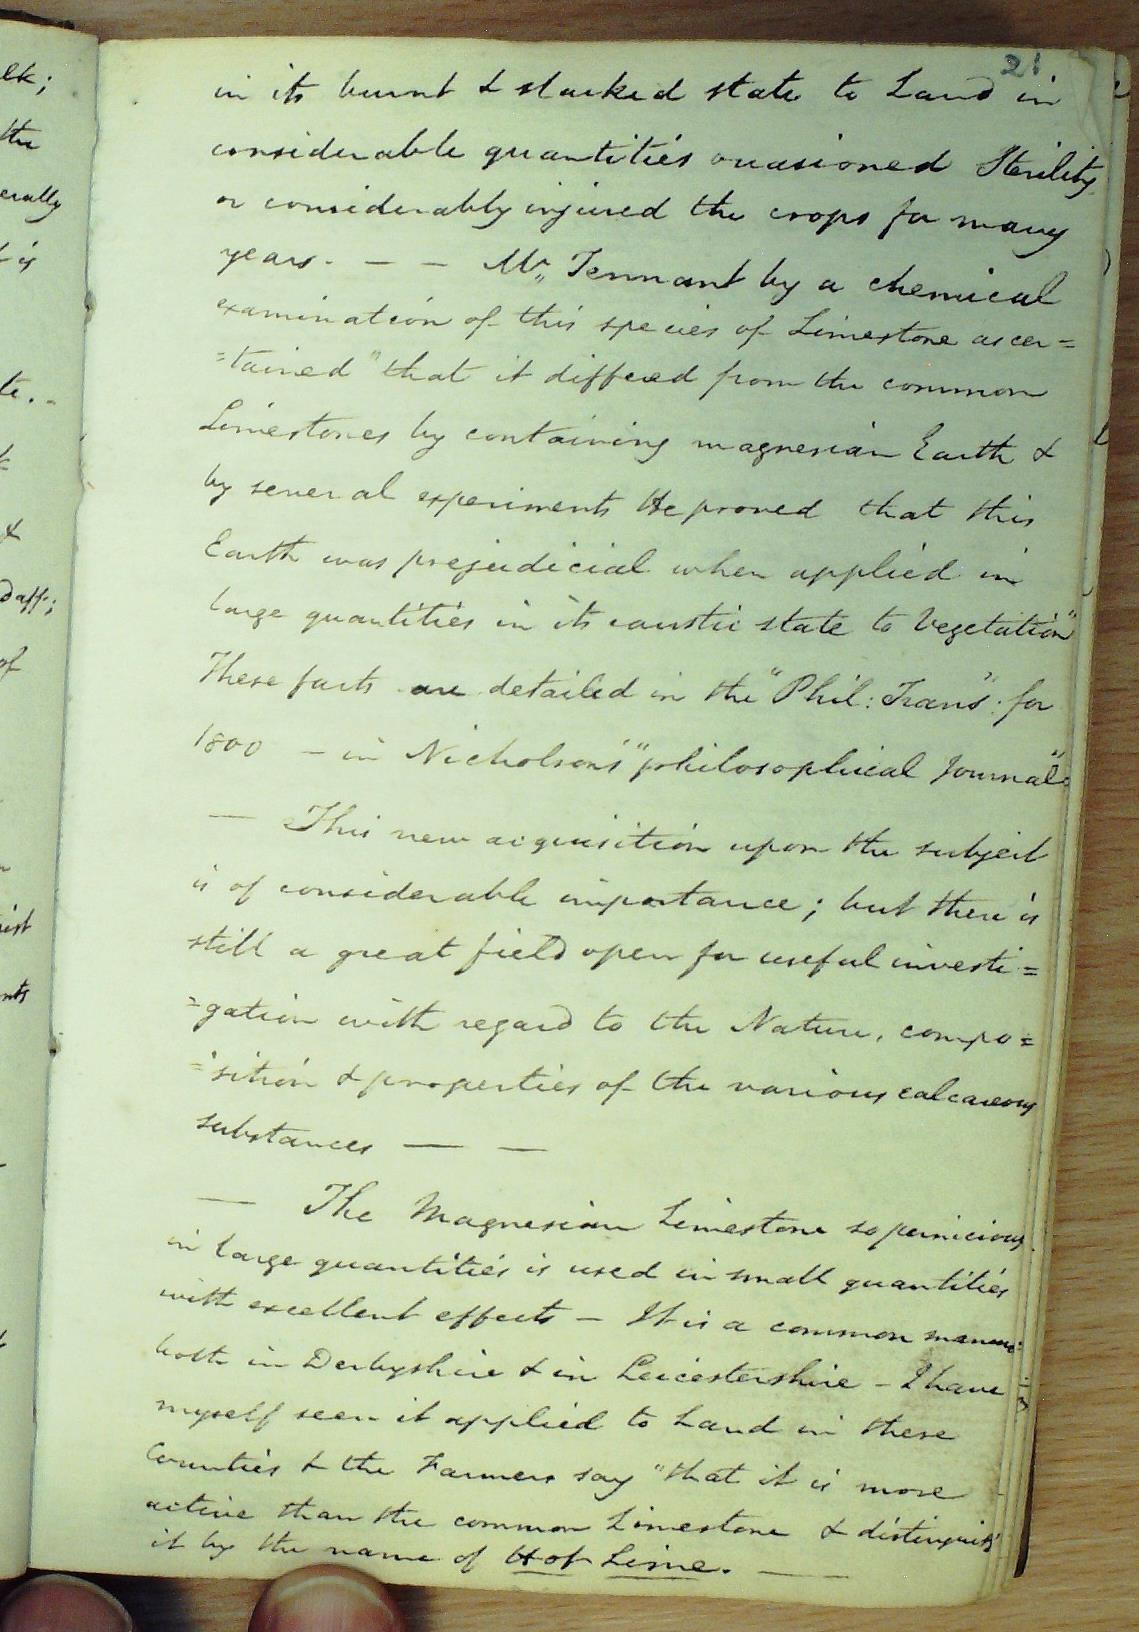 21
in its burnt & slacked state to Land in
considerable quantities occasioned Sterility
or considerably injured the crops for many
years. — — Mr. Tennant by a chemical
examination of this species of Limestone ascer=
=tained "that it differed from the common
Limestones by containing magnesian Earth &
by several experiments He proved that this
Earth was prejudicial when applied in
large quantities in its caustic state to Vegetation"
These facts are detailed in the "Phil: Trans": for
1800 — in Nicholson's "philosophical Journal"
— This new acquisition upon the subject
is of considerable importance; but there is
still a great field open for useful investi=
=gation with regard to the Nature, compo=
=sition & properties of the various calcareous
substances — —
— The Magnesian Limestone so pernicious
in large quantities is used in small quantities
with excellent effects – It is a common manure
both in Derbyshire & in Leicestershire – I have
myself seen it applied to Land in these
Counties & the Farmers say "that it is more
active than the common Limestone & distinguish
it by the name of Hot Lime. —
elk;
the
erally
t is
te. -
&
Daff;
of
ist
nts